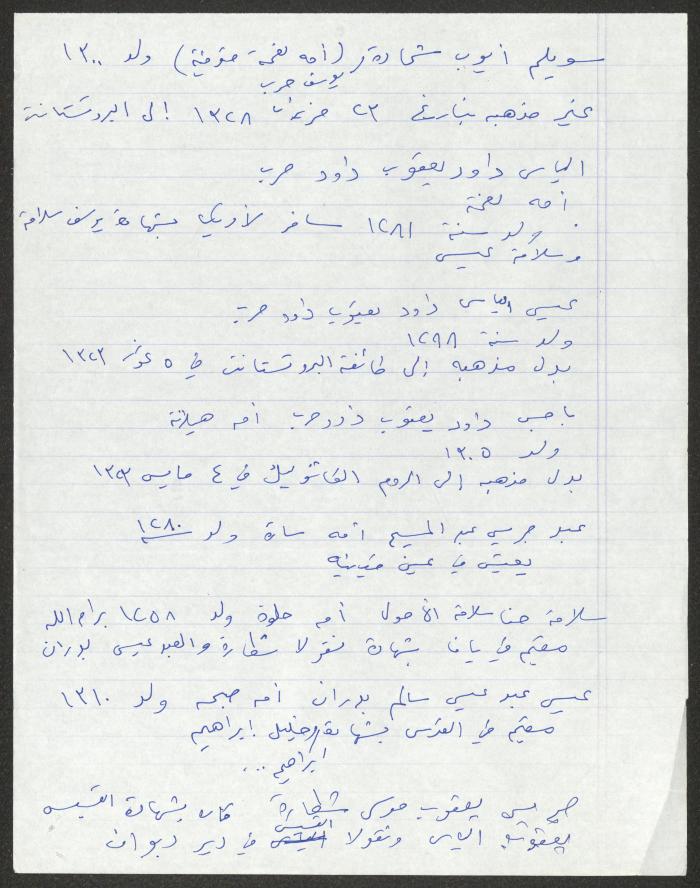 سويلم أيوب شحادة (أمه نعمة متوفية) ولد ١٣٠٠
يوسف حرب
غير مذهبه بتاريخ ٢٣ حزيران ١٣٢٨ إلى البروتستانت
الياس داود يعقوب داود حرب
أمه نعمة
ولد سنة ١٢٨١ سافر لأمريكا بشهادة يوسف سلامة
وسلامة عيسى
عيسى الياس داود يعقوب داود حرب
ولد سنة ١٢٩٨
بدل مذهبه إلى طائفة البروتستانت في ٥ تموز ١٣٢٣
داود يعقوب داود حرب أمه هيلانة
ولد ١٣٠٥
بدل مذهبه إلى الروم الكاثوليك في ٤ مايس ١٣٢٣
عبد جرسي عبد المسيح أمه سارة ولد ١٢٨٠
يعيش في عين قينيه
سلامة حنا سلامة الأحول أمه حلوة ولد ١٢٥٨ برام الله
مقيم في يافا بشهادة نقولا شطارة والعبد عيسى بدران
عيسى عبد عيسى سالم بدران أمه صبحه ولد ١٣١٠
مقيم في القدس بشهادة خليل ابراهيم
ابراهيم ...
جريس يعقوب موسى شطارة كان بشهادة القسيس
القسيس
يعقوب الياس ونقولا في دير ديوان